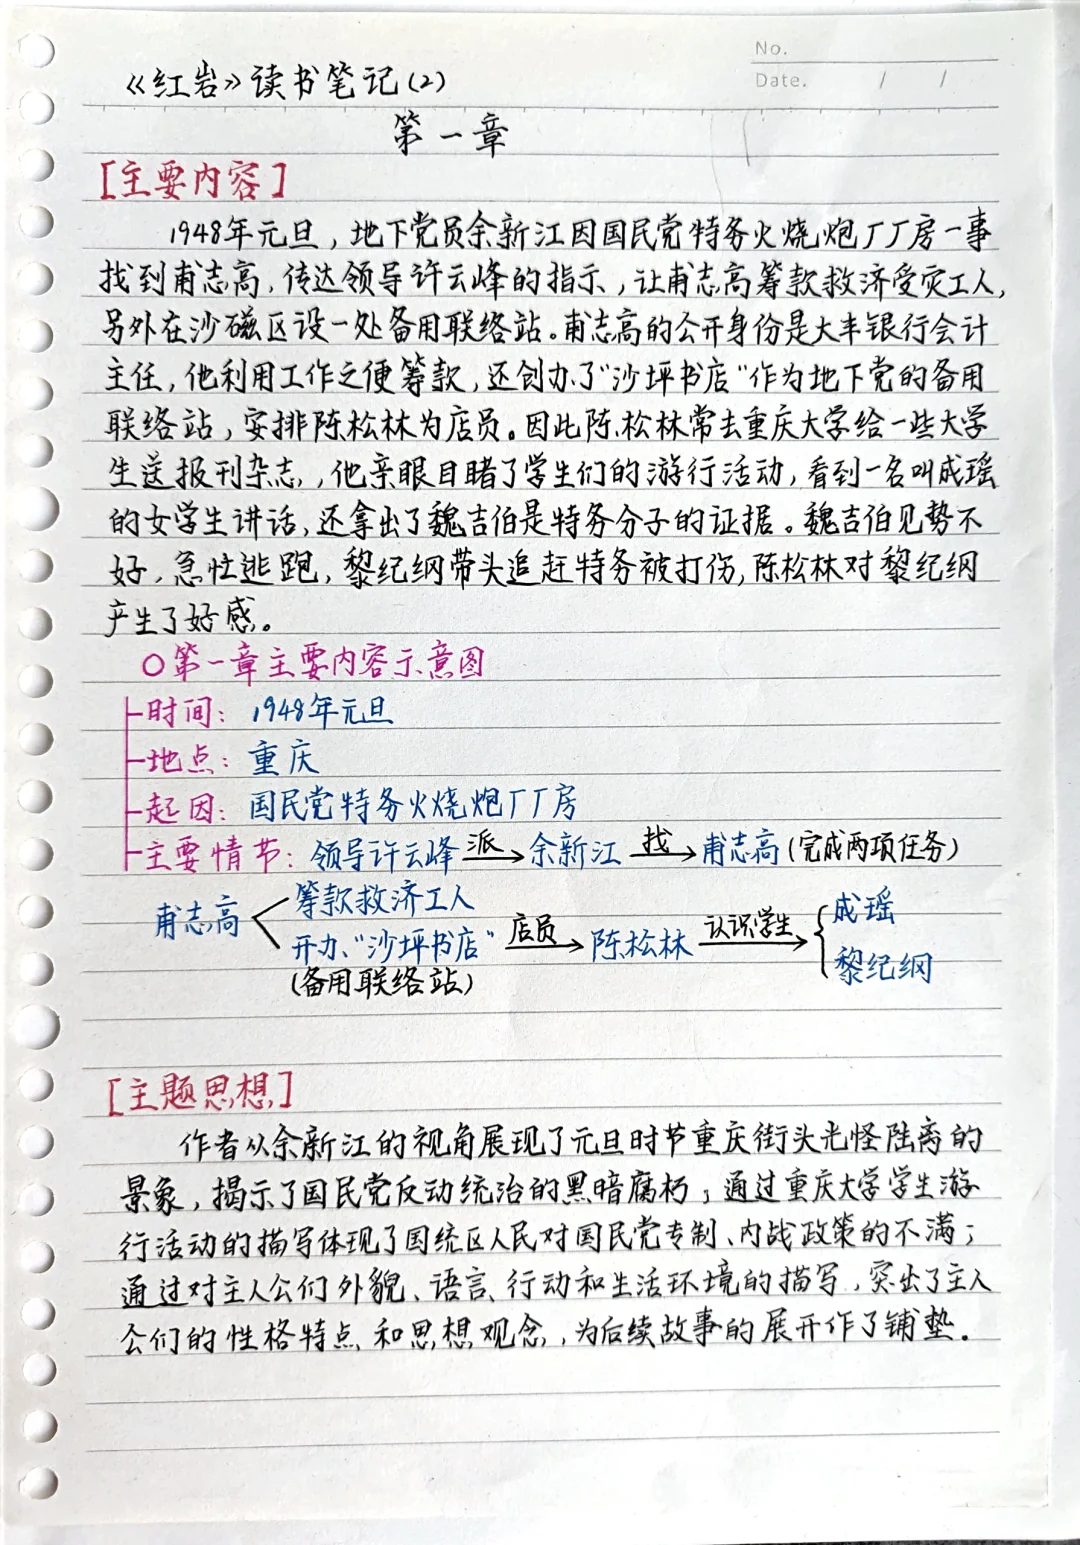 No.
Date. / /
《红岩》读书笔记(2)
第一章
[主要内容]
1948年元旦，地下党员余新江因国民党特务火烧炮厂厂房一事
找到甫志高，传达领导许云峰的指示，让甫志高筹款救济受灾工人，
另外在沙磁区设一处备用联络站。甫志高的公开身份是大丰银行会计
主任，他利用工作之便筹款，还创办了“沙坪书店”作为地下党的备用
联络站，安排陈松林为店员。因此陈松林常去重庆大学给一些大学
生送报刊杂志，他亲眼目睹了学生们的游行活动，看到一名叫成瑶
的女学生讲话，还拿出了魏吉伯是特务分子的证据。魏吉伯见势不
好，急忙逃跑，黎纪纲带头追赶特务被打伤，陈松林对黎纪纲
产生了好感。
○第一章主要内容示意图
时间：1948年元旦
地点：重庆
起因：国民党特务火烧炮厂厂房
主要情节：领导许云峰 派→ 余新江 找→ 甫志高(完成两项任务)
甫志高
筹款救济工人
开办“沙坪书店” 店员→ 陈松林 认识学生→ { 成瑶
黎纪纲
(备用联络站)
[主题思想]
作者从余新江的视角展现了元旦时节重庆街头光怪陆离的
景象，揭示了国民党反动统治的黑暗腐朽；通过重庆大学学生游
行活动的描写体现了国统区人民对国民党专制、内战政策的不满；
通过对主人公们外貌、语言、行动和生活环境的描写，突出了主人
公们的性格特点和思想观念，为后续故事的展开作了铺垫。